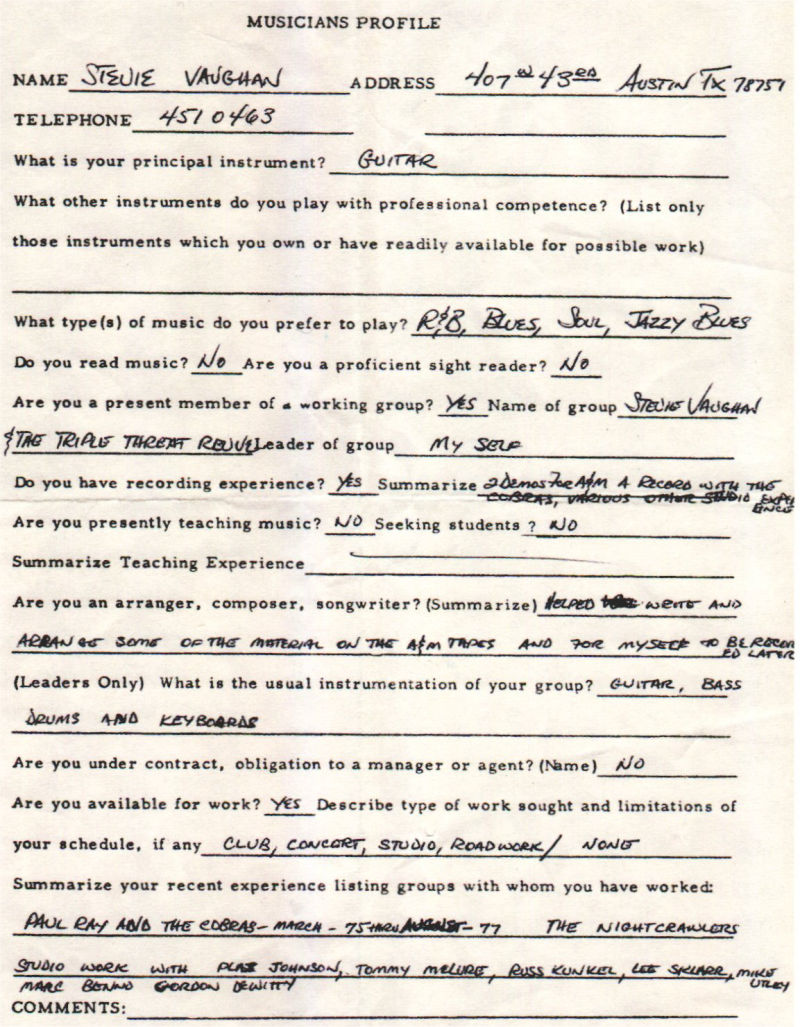 MUSICIANS PROFILE
NAME STEVIE VAUGHAN ADDRESS 407 W 43RD AUSTIN TX 78751
TELEPHONE 451 0463
What is your principal instrument? GUITAR
What other instruments do you play with professional competence? (List only
those instruments which you own or have readily available for possible work)
What type(s) of music do you prefer to play? R&B, BLUES, SOUL, JAZZY BLUES
Do you read music? NO Are you a proficient sight reader? NO
Are you a present member of a working group? YES Name of group STEVIE VAUGHAN
& THE TRIPLE THREAT REVUE Leader of group MY SELF
Do you have recording experience? YES Summarize 2 DEMOS FOR A&M A RECORD WITH THE
COBRAS, VARIOUS OTHER STUDIO EXPERIENCE
Are you presently teaching music? NO Seeking students ? NO
Summarize Teaching Experience
Are you an arranger, composer, songwriter? (Summarize) HELPED WRITE AND
ARRANGE SOME OF THE MATERIAL ON THE A&M TAPES AND FOR MYSELF TO BE RECORDED LATER
(Leaders Only) What is the usual instrumentation of your group? GUITAR, BASS
DRUMS AND KEYBOARDS
Are you under contract, obligation to a manager or agent? (Name) NO
Are you available for work? YES Describe type of work sought and limitations of
your schedule, if any CLUB, CONCERT, STUDIO, ROADWORK / NONE
Summarize your recent experience listing groups with whom you have worked:
PAUL RAY AND THE COBRAS - MARCH - 75 THRU AUGUST - 77 THE NIGHTCRAWLERS
STUDIO WORK WITH PLAS JOHNSON, TOMMY McLURE, RUSS KUNKEL, LEE SKLARR, MIKE UTLEY
MARC BENNO GORDON DEWITTY
COMMENTS: